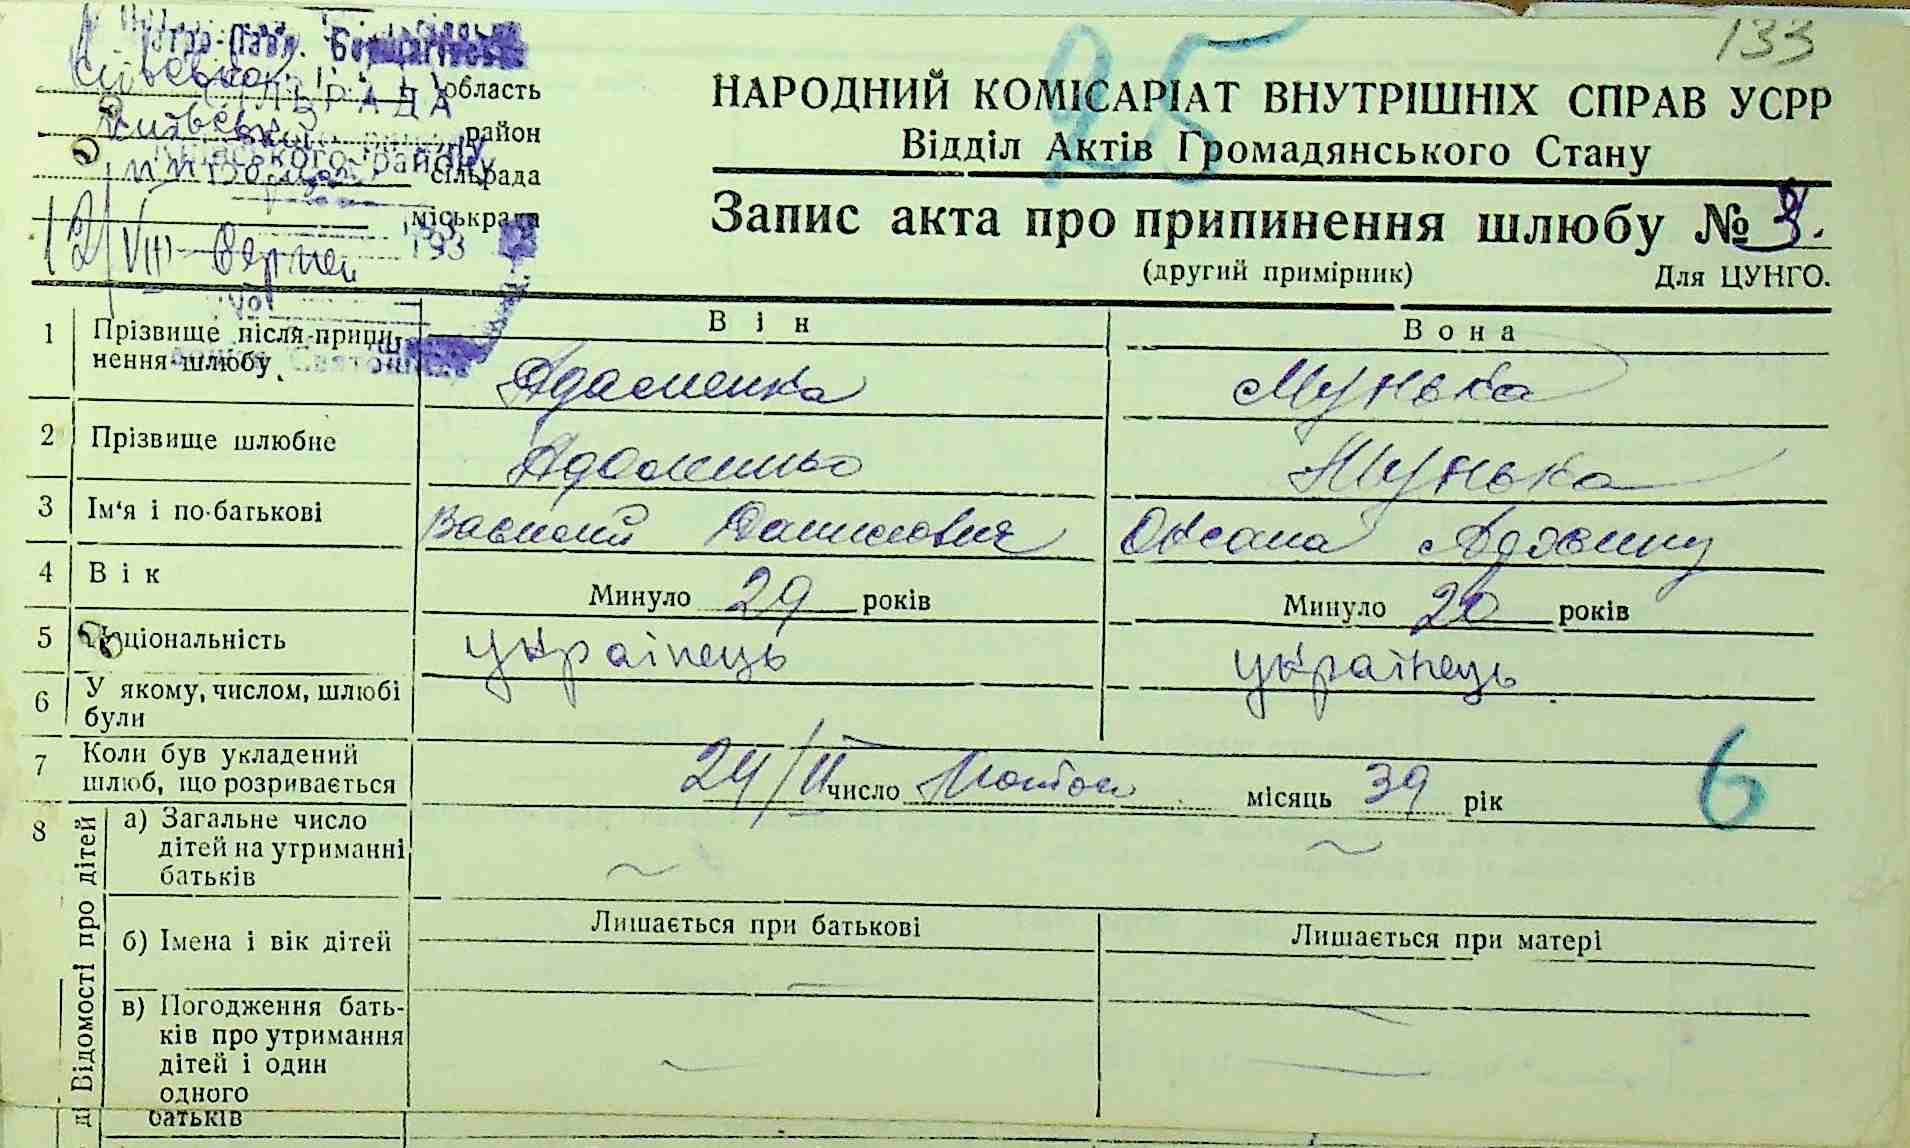 133
95
область
район
сільрада
міськрада
12/VIII
193
НАРОДНИЙ КОМІСАРІАТ ВНУТРІШНІХ СПРАВ УСРР
Відділ Актів Громадянського Стану
Запис акта про припинення шлюбу №
(другий примірник) Для ЦУНГО.
Він Вона
1 Прізвище після припи-
нення шлюбу Адаменка Мунька
2 Прізвище шлюбне Мунька
3 Ім'я і по-батькові Василий Данилович Оксана
4 Вік Минуло 29 років Минуло 20 років
5 Національність українець українець
6 У якому, числом, шлюбі
були
7 Коли був укладений
шлюб, що розривається 24/II число місяць 39 рік 6
8 Відомості про дітей
а) Загальне число
дітей на утриманні
батьків
б) Імена і вік дітей Лишається при батькові Лишається при матері
в) Погодження бать-
ків про утримання
дітей і один
одного
батьків